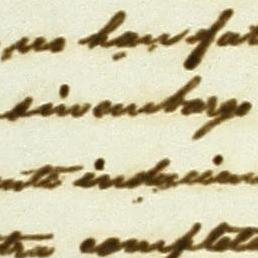 no han fal
sin embargo
ente indician
tra completa